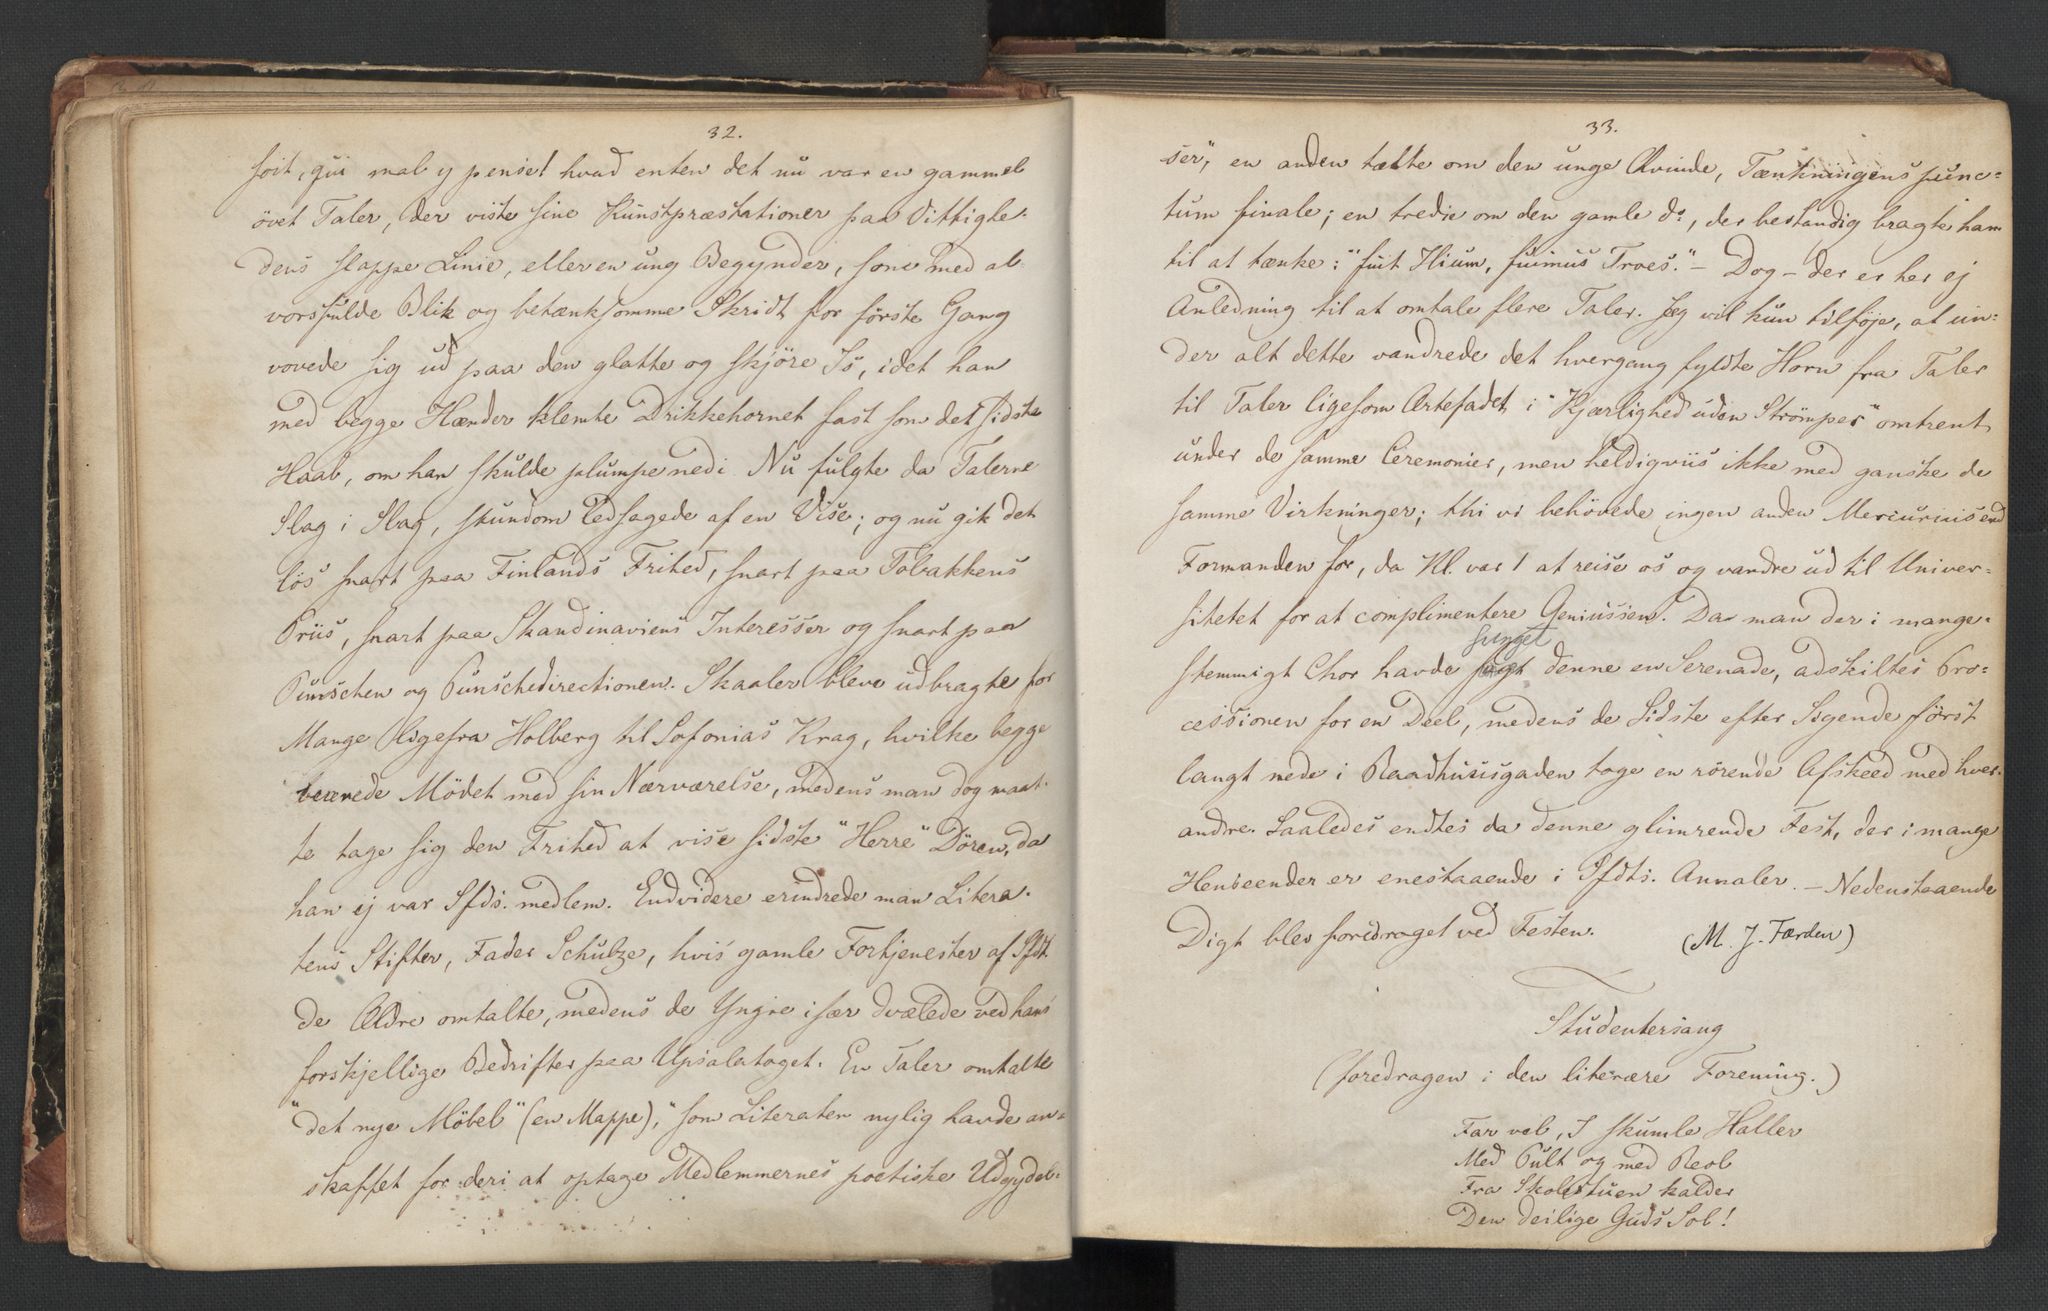 32.
soit, qui mal y pense! hvad enten det nu var en gammel
övet Taler, der viste sine Kunstpræstationer paa Vittighe-
dens slappe Linie, eller en ung Begynder, som med al-
vorsfulde Blik og betænksomme Skridt for förste Gang
vovede sig ud paa den glatte og skjöre Is, idet han
med begge Hænder klemte Drikkehornet fast som det sidste
Haab, om han skulde plumpe nedi. Nu fulgte da Talerne
Slag i Slag, stundom ledsagede af en Vise; og nu gik det
lös snart paa Finlands Frihed, snart paa Tobakkens
Priis, snart paa Skandinaviens Interesser og snart paa
Punschen og Punschedirectionen. Skaaler bleve udbragte for
Mange ligefra Holberg til Sofonias Krag, hvilke begge
beærede Mödet med sin Nærværelse, medens man dog maat-
te tage sig den Frihed at vise sidste "Herre" Dören, da
han ej var Sfds. medlem. Endvidere erindrede man Litera-
tens Stifter, Fader Schulze, hvis gamle Fortjenester af Sfdt.
de Ældre omtalte, medens de Yngre især dvælede ved hans
forskjellige Bedrifter paa Upsalatoget. En Taler omtalte
"det nye Möbel" (en Mappe), "som Literaten nylig havde an-
skaffet for deri at optage Medlemmernes poetiske Udgydel-
33.
ser", en anden talte om den unge Qvinde, Tænkningens punc-
tum finale; en tredie om den gamle do, der bestandig bragte ham
til at tænke: "fuit Ilium, fuimus Troes." - Dog - der er her ej
Anledning til at omtale flere Taler. Jeg vil kun tilföje, at un-
der alt dette vandrede det hvergang fyldte Horn fra Taler
til Taler ligesom Ærtefadet i "Kjærlighed uden Strömper" omtrent
under de samme Ceremonier, men heldigviis ikke med ganske de
samme Virkninger; thi vi behövede ingen anden Mercurius end
Formanden for, da Kl. var 1 at reise os og vandre ud til Univer-
sitetet for at complimentere Geniussen. Da man der i mange-
sunget
stemmigt Chor havde denne en Serenade, adskiltes Pro-
cessionen for en Deel, medens de Sidste efter Sigende först
langt nede i Raadhuusgaden toge en rörende Afskeed med hver-
andre. Saaledes endtes da denne glimrende Fest, der i mange
Henseender er enestaaende i Sfdts. Annaler. - Nedenstaaende
Digt blev foredraget ved Festen. (M. J. Færden)
Studentersang
(foredragen i den literære Forening.)
Far vel, I skumle Haller
Med Pult og med Reol
Fra Skolestuen kalder
Den deilige Guds Sol!